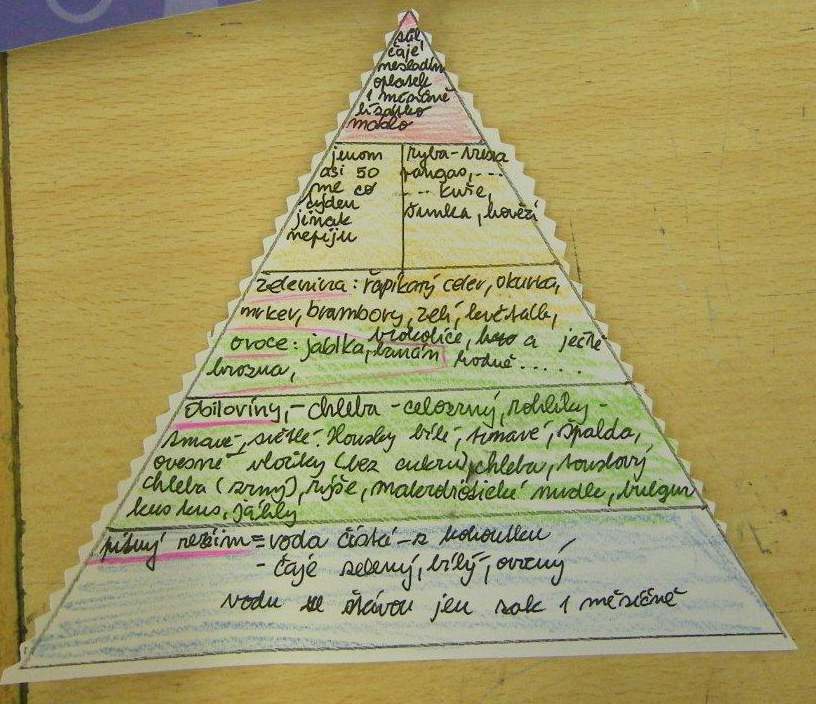 sůl
čaje
nesladím
oplatek
1 měsíčně
lízátko
málo
jenom
asi 50
týden
jinak
nepiju
ryba - treska
pangas, ...
... kuře,
šunka, hovězí
zelenina: řapíkatý celer, okurka,
mrkev, brambory, zelí, květák,
brokolice, a ještě
ovoce: jablka, banán hodně.....
hrozna,
obiloviny, - chleba - celozrný, rohlíky -
tmavé, světlé. Housky bílé, tmavé, špalda,
ovesné vločky (bez cukru), chleba, toustový
chleba (zrný), rýše, makrobiotické nudle, bulgur
kus kus, jáhly
pitný režim = voda čistá - z kohoutku
- čaje zelený, bílý, ovocný
vodu se šťávou jen tak 1 měsíčně